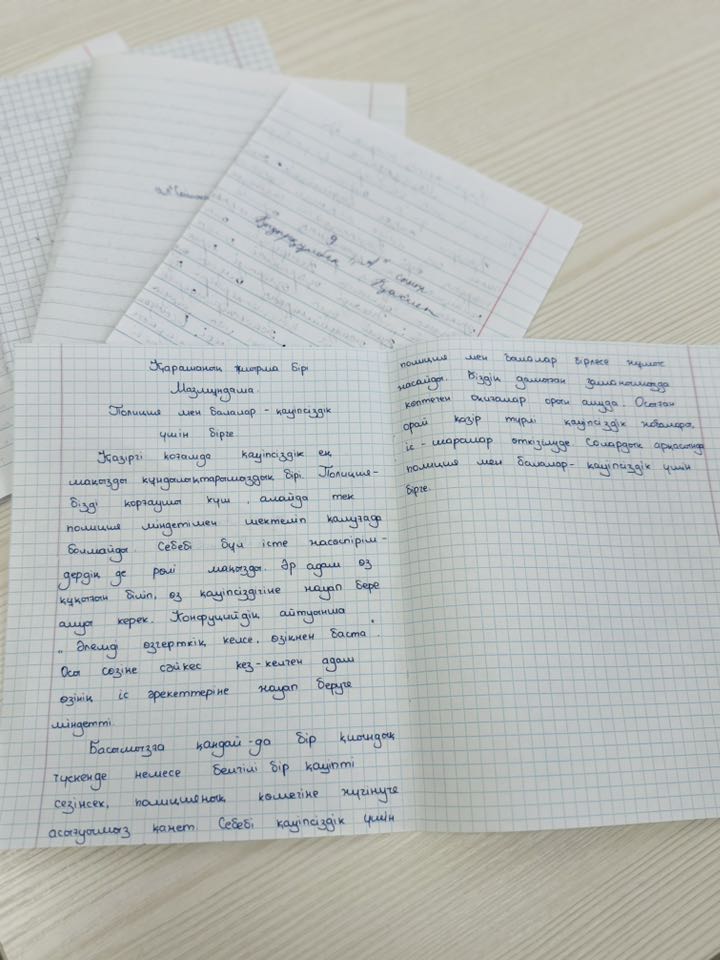 9 "А" сынып
Қарашаның жиырма бірі
Мазмұндама.
Полиция мен балалар - қауіпсіздік
үшін бірге.
Қазіргі қоғамда қауіпсіздік ең
маңызды құндылықтарымаздық бірі. Полиция-
бізді қорғаушы күш, алайда тек
полиция міндетімен шектеліп қалуғада
болмайды. Себебі бұл істе жасөспірім-
дердің де рөлі маңызды. Әр адам өз
құқығын біліп, өз қауіпсіздігіне жауап бере
алуы керек. Конфуцийдің айтуынша
„ Әлемді өзгерткің келсе, өзіңнен баста".
Осы сөзіне сәйкес кез-келген адам
өзінің іс әрекеттеріне жауап беруге
міндетті.
Басымызға қандай-да бір қиындық
түскенде немесе белгілі бір қауіпті
сезінсек, полицияның көмегіне жүгінуге
асығуымыз қажет. Себебі қауіпсіздік үшін
полиция мен балалар бірлесе жұмыс
жасайды. Біздің дамыған заманымызда
көптеген оқиғалар орын алуда. Осыған
орай қазір түрлі қауіпсіздік жобалары,
іс-шаралар өткізілуде. Солардың арқасында
полиция мен балалар- қауіпсіздік үшін
бірге.